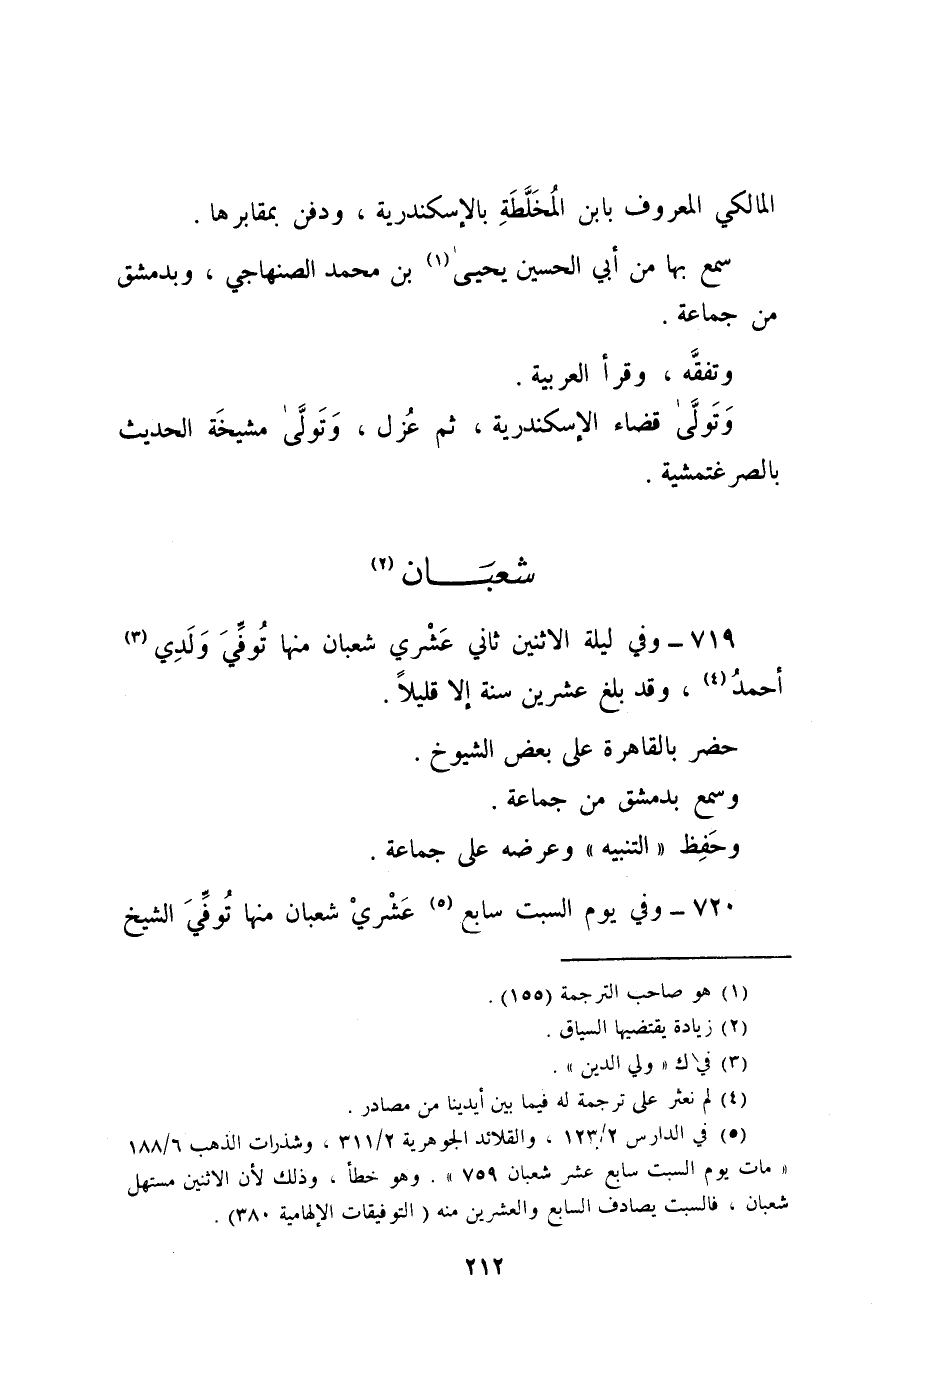 المالكي المعروف بابن المُخَلَّطَةِ بالإسكندرية ، ودفن بمقابرها .
سمع بها من أبي الحسين يحيىٰ (١) بن محمد الصنهاجي ، وبدمشق
من جماعة .
وتفقَّه ، وقرأ العربية .
وَتَولَّىٰ قضاء الإسكندرية ، ثم عُزل ، وَتَولَّىٰ مشيخَة الحديث
بالصرغتمشية .
شعبَـــــان (٢)
٧١٩ ـ وفي ليلة الاثنين ثاني عَشْري شعبان منها تُوفِّيَ وَلَدِي (٣)
أحمدُ (٤) ، وقد بلغ عشرين سنة إلا قليلاً .
حضر بالقاهرة على بعض الشيوخ .
وسمع بدمشق من جماعة .
وحَفِظ « التنبيه » وعرضه على جماعة .
٧٢٠ ـ وفي يوم السبت سابع (٥) عَشْريْ شعبان منها تُوفِّيَ الشيخ
(١) هو صاحب الترجمة (١٥٥) .
(٢) زيادة يقتضيها السياق .
(٣) في ك « ولي الدين » .
(٤) لم نعثر على ترجمة له فيما بين أيدينا من مصادر .
(٥) في الدارس ١٢٣/٢ ، والقلائد الجوهرية ٣١١/٢ ، وشذرات الذهب ١٨٨/٦
« مات يوم السبت سابع عشر شعبان ٧٥٩ » . وهو خطأ ، وذلك لأن الاثنين مستهل
شعبان ، فالسبت يصادف السابع والعشرين منه ( التوفيقات الإلهامية ٣٨٠) .
٢١٢